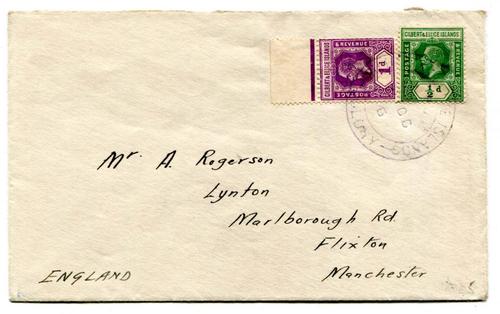 GILBERT & ELLICE ISLANDS
POSTAGE & REVENUE
1d
GILBERT & ELLICE ISLANDS
POSTAGE & REVENUE
½d
ISLANDS
Mr A. Rogerson
Lynton
Marlborough Rd.
Flixton
Manchester
ENGLAND